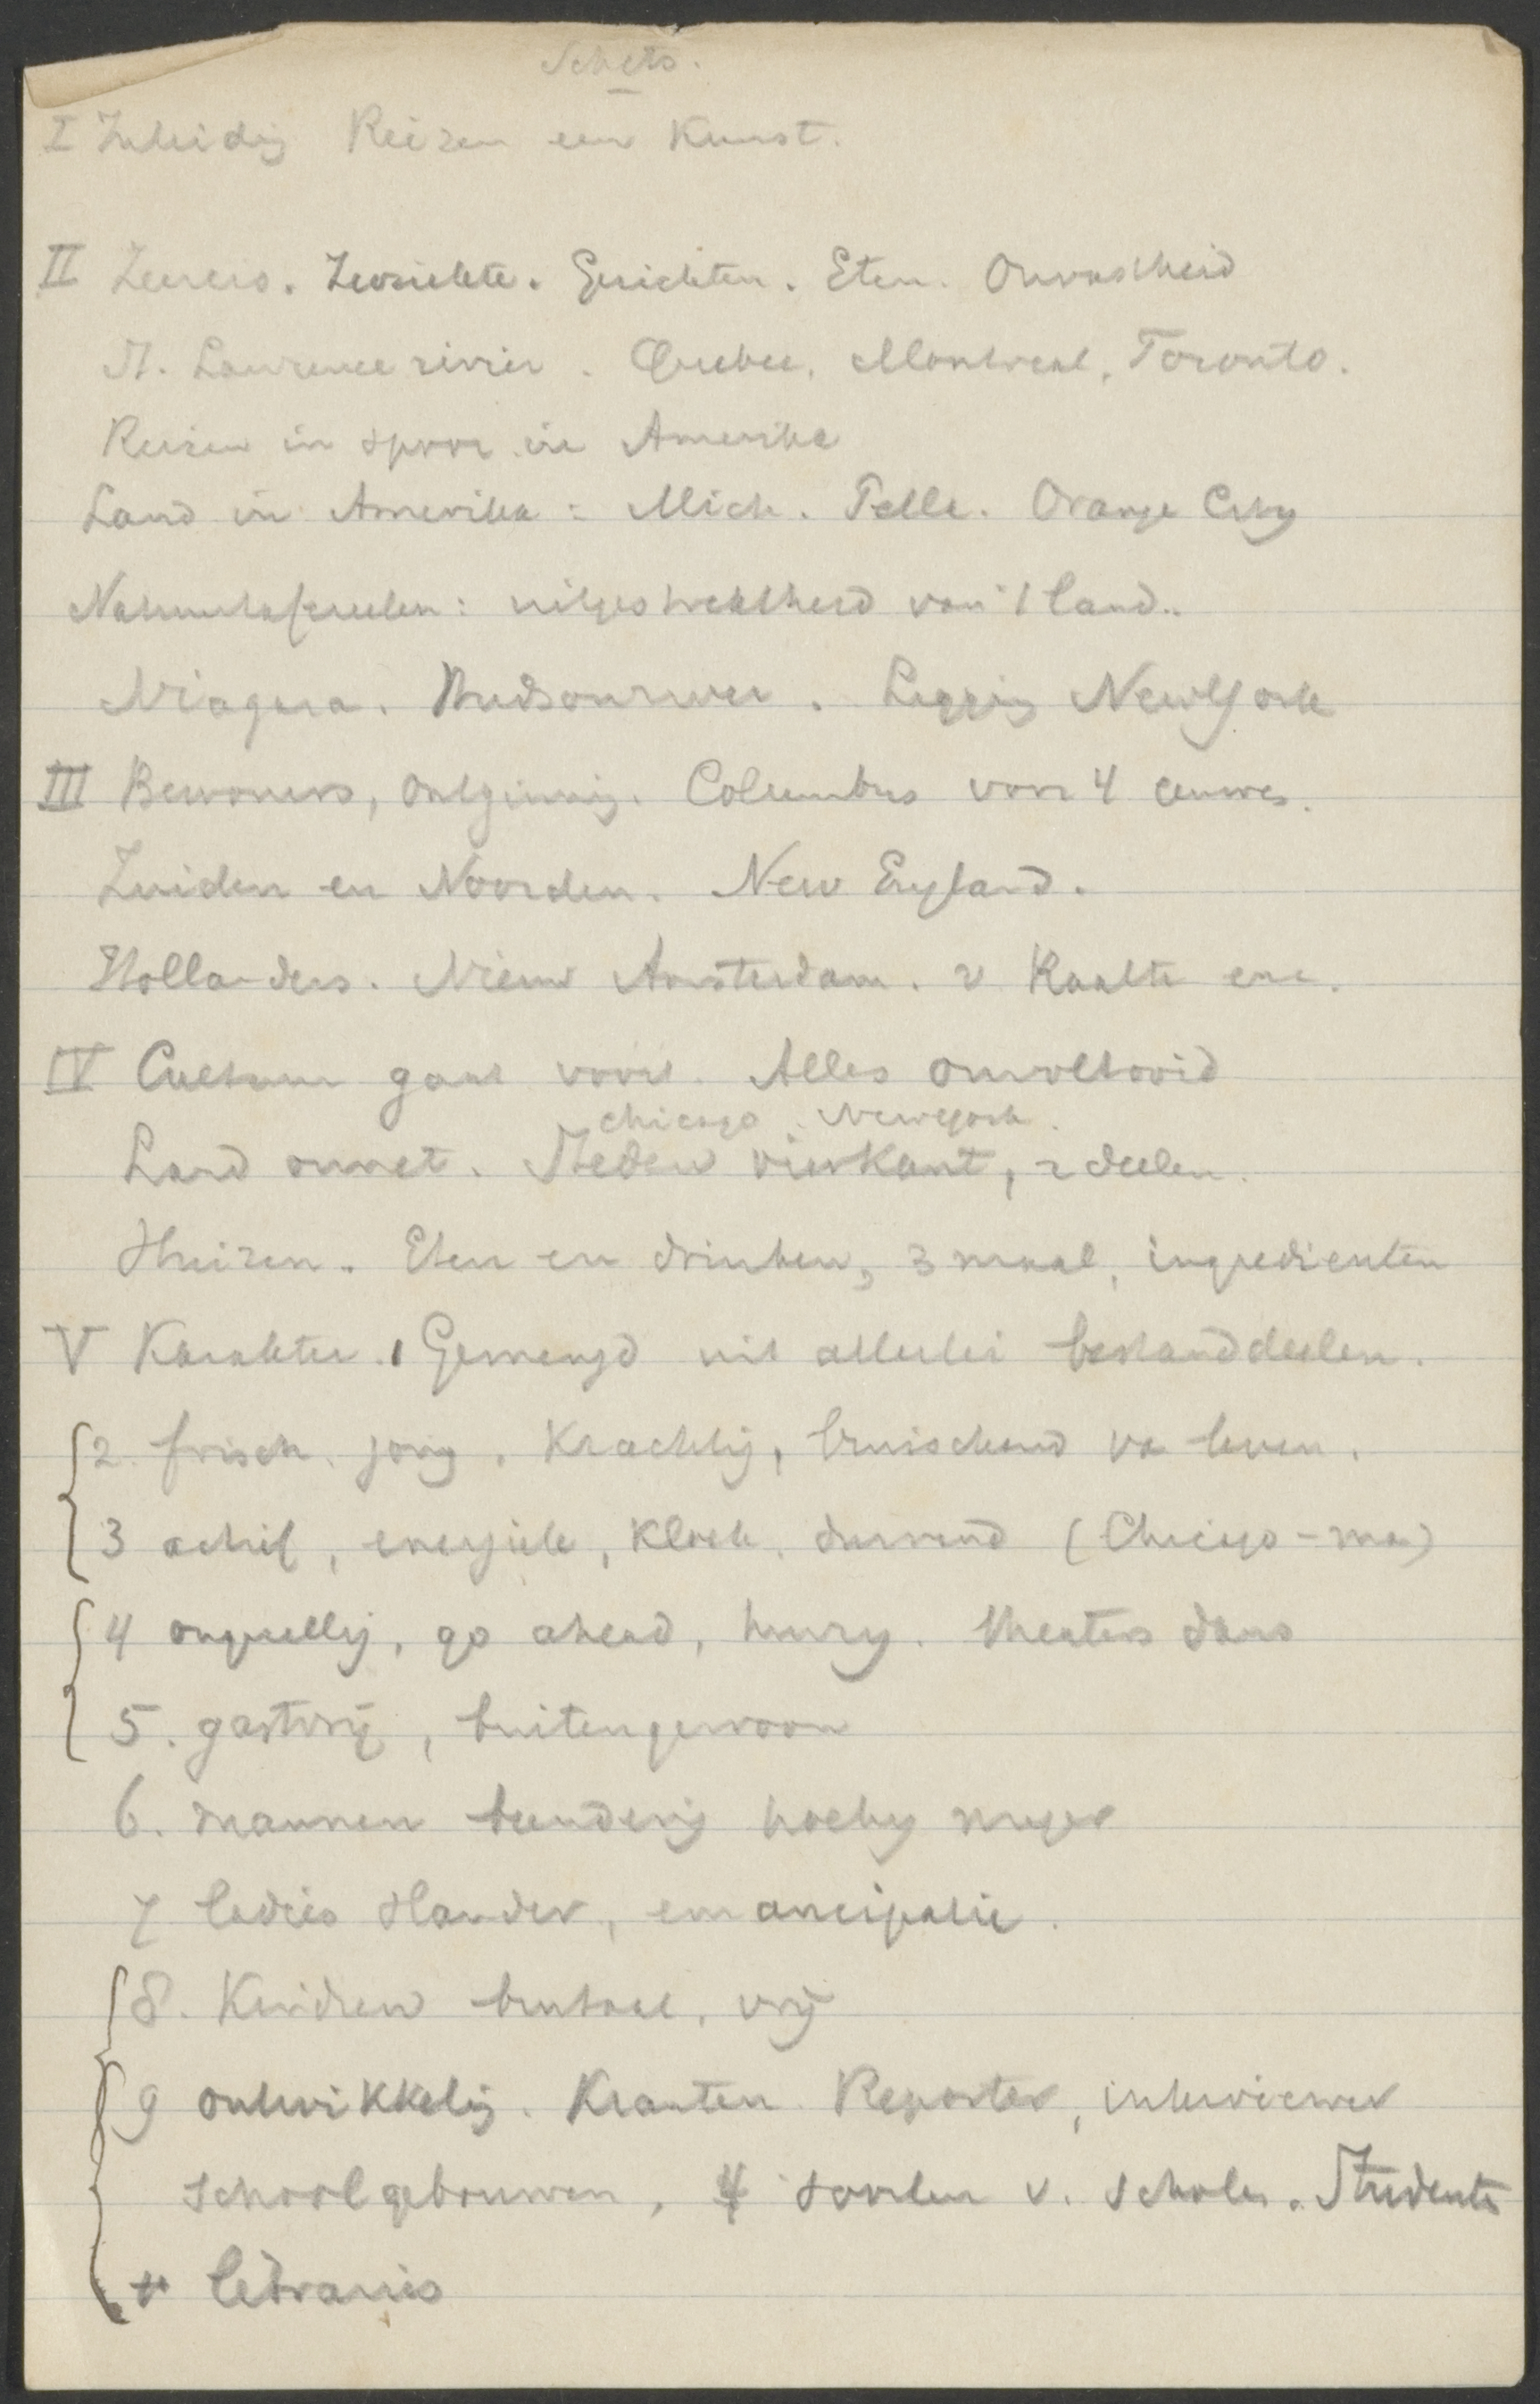 Schets.
I Inleiding Reizen een Kunst.
II Zeereis. Zeeziekte. Gerichten. Eten. Onvastheid
St. Lawrence rivier. Quebec, Montreal, Toronto.
Reizen in spoor in Amerika
Land in Amerika: Mich. Pella. Orange City
Natuurtafereelen: uitgestrektheid van 't land.
Niagara. Hudsonriver. Ligging New York
III Bewoners, ontginning. Columbus voor 4 eeuwen.
Zuiden en Noorden. New England.
Hollanders. Nieuw Amsterdam. v Raalte enz.
IV Cultuur gaat voort. Alles onvoltooid
Chicago. New York.
Land onmet. Steden vierkant, 2 deelen.
Huizen. Eten en drinken, 3 maal, ingredienten
V Karakter. 1 Gemengd uit allerlei bestanddeelen.
2. frisch. jong. Krachtig, bruischend va leven.
3 actief, energiek, kloek. durvend (Chicago-man)
4 ongezellig, go ahead, hurry. theaters dans
5. gastvrij, buitengewoon
6. mannen
7 ladies, emancipatie.
8. Kindren brutaal, vrij
9 ontwikkeling. Kranten. Reporter, interviewer
schoolgebouwen, 4 soorten v. scholen. Students
libraries